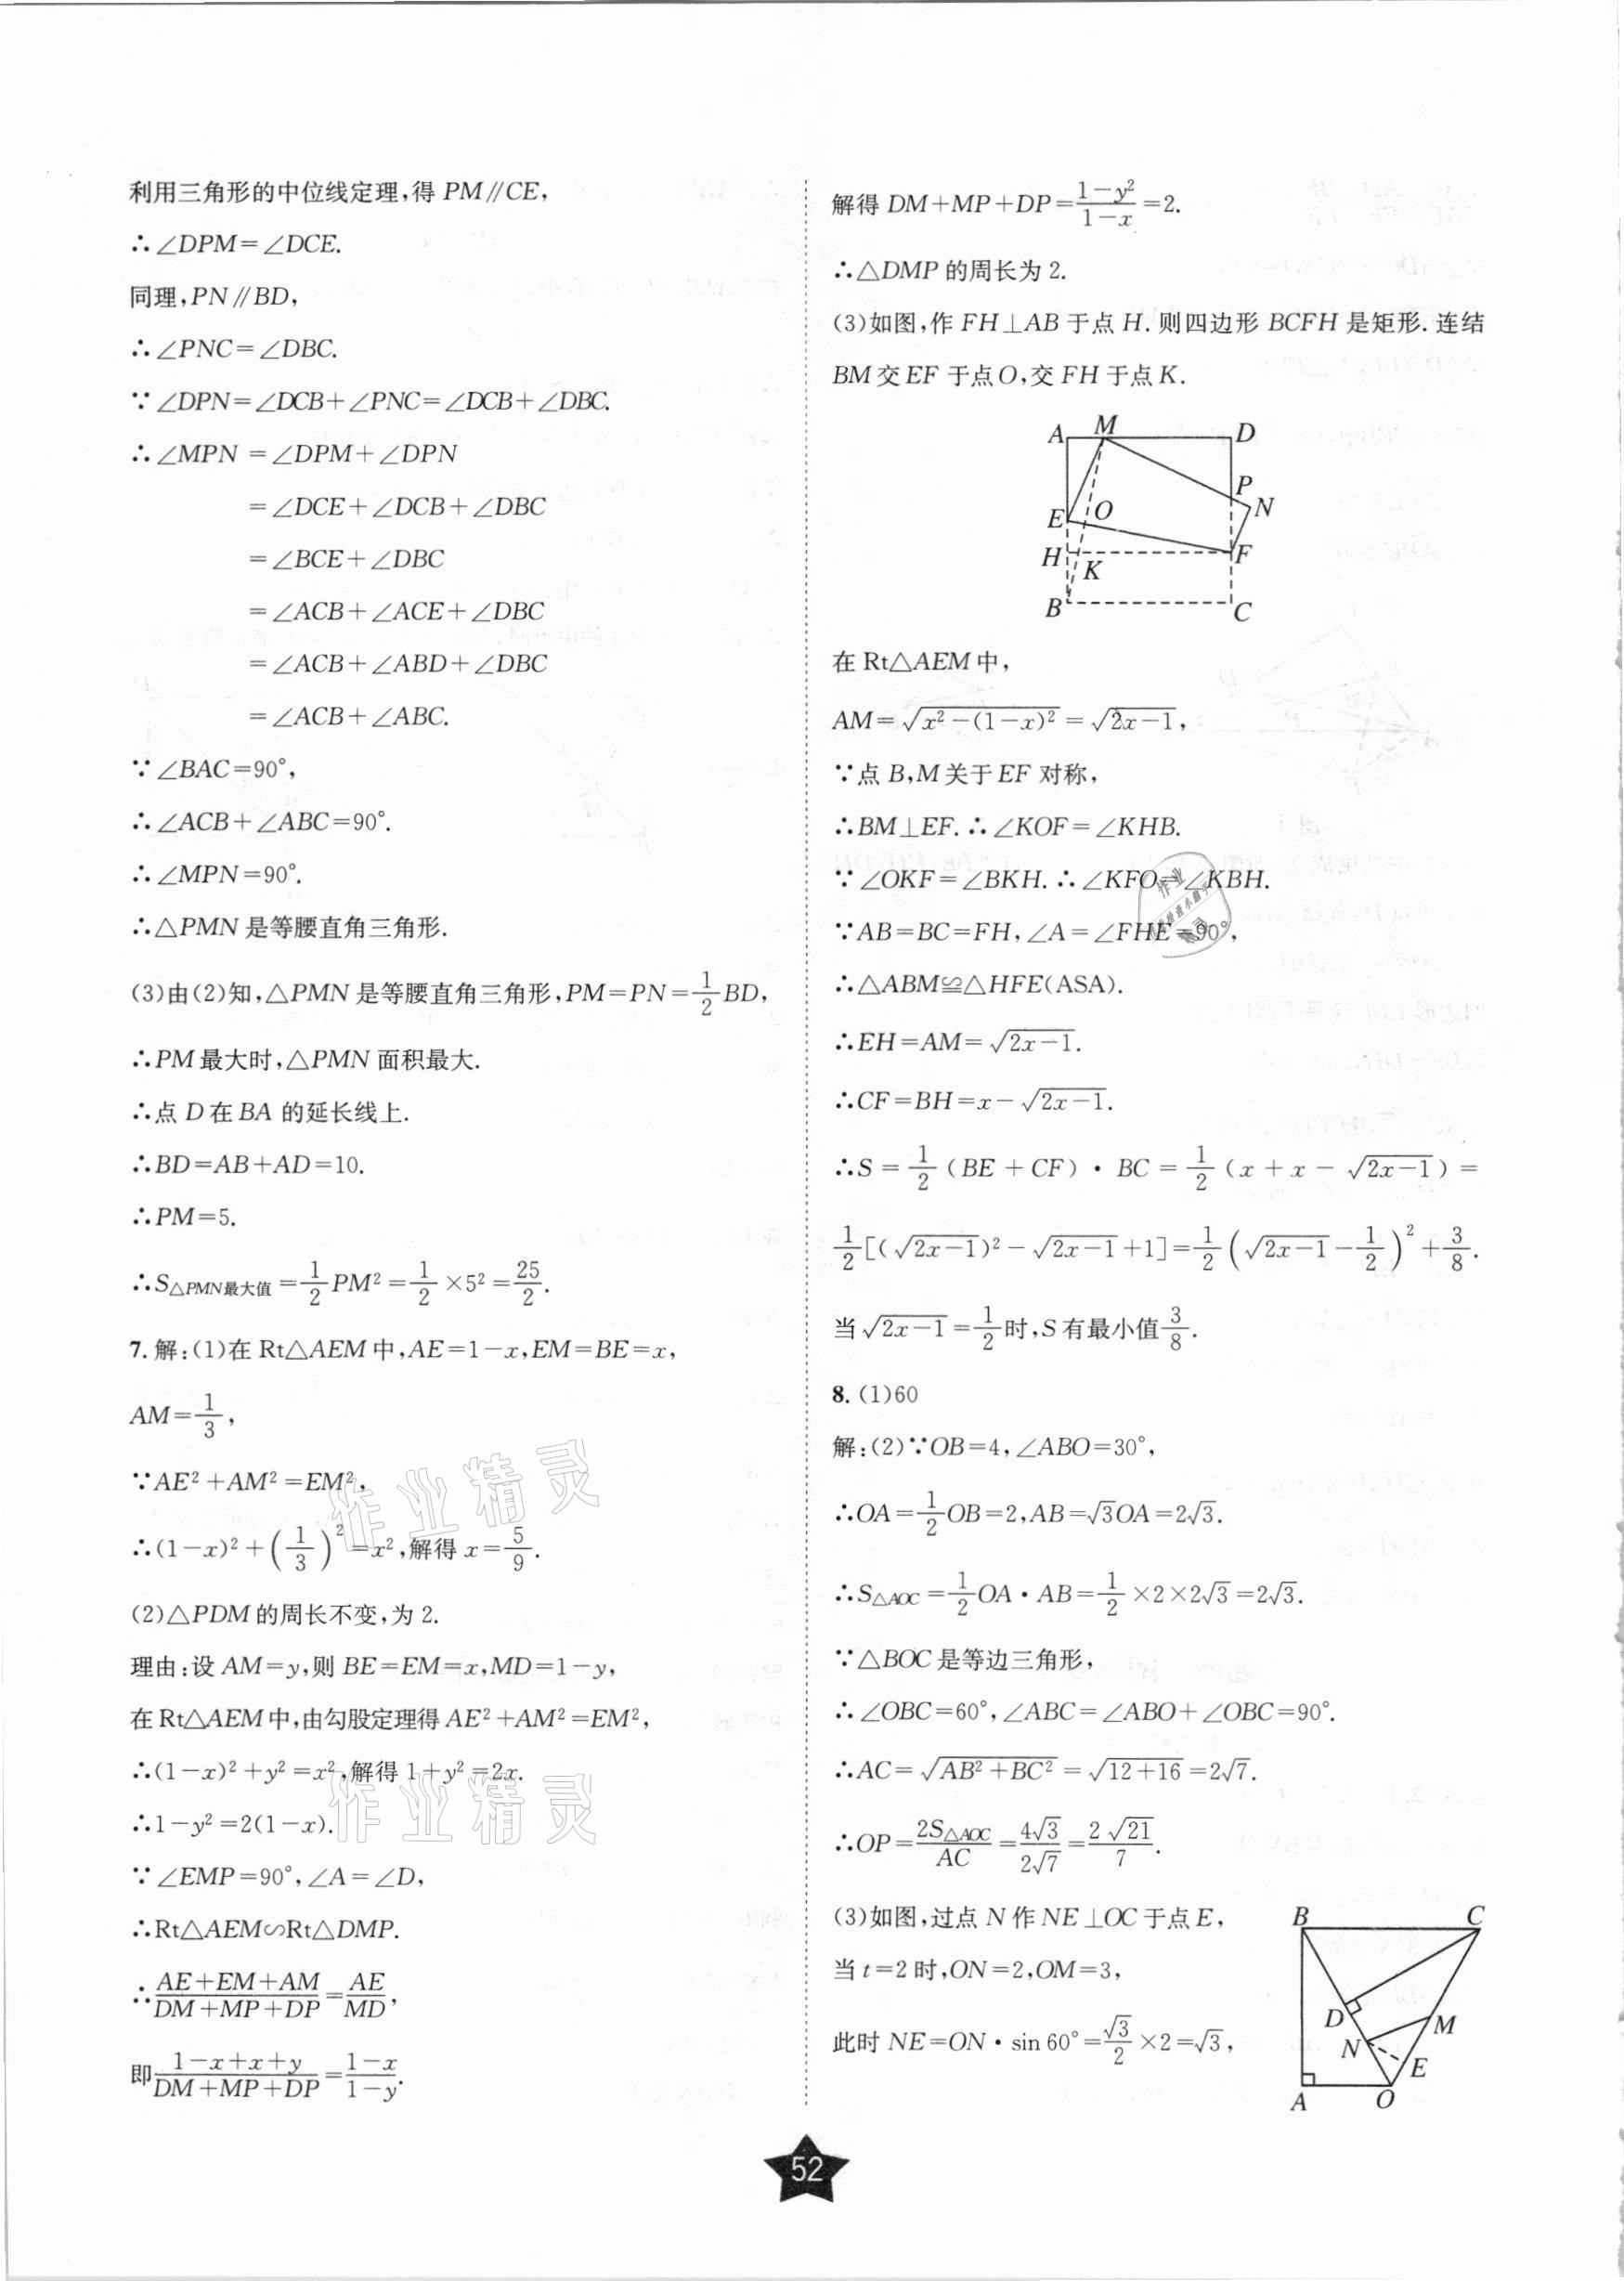 利用三角形的中位线定理,得 PM∥CE,
∴∠DPM=∠DCE.
同理,PN∥BD,
∴∠PNC=∠DBC.
∵∠DPN=∠DCB+∠PNC=∠DCB+∠DBC.
∴∠MPN =∠DPM+∠DPN
=∠DCE+∠DCB+∠DBC
=∠BCE+∠DBC
=∠ACB+∠ACE+∠DBC
=∠ACB+∠ABD+∠DBC
=∠ACB+∠ABC.
∵∠BAC=90°,
∴∠ACB+∠ABC=90°.
∴∠MPN=90°.
∴△PMN 是等腰直角三角形.
(3)由(2)知,△PMN 是等腰直角三角形,PM=PN=1/2 BD,
∴PM 最大时,△PMN 面积最大.
∴点 D 在 BA 的延长线上.
∴BD=AB+AD=10.
∴PM=5.
∴S△PMN最大值=1/2 PM²=1/2×5²=25/2.
7. 解:(1)在 Rt△AEM 中,AE=1-x,EM=BE=x,
AM=1/3,
∵AE²+AM²=EM²,
∴(1-x)²+(1/3)²=x²,解得 x=5/9.
(2)△PDM 的周长不变,为 2.
理由:设 AM=y,则 BE=EM=x,MD=1-y,
在Rt△AEM中,由勾股定理得AE²+AM²=EM²,
∴(1-x)²+y²=x²,解得 1+y²=2x.
∴1-y²=2(1-x).
∵∠EMP=90°,∠A=∠D,
∴Rt△AEM∽Rt△DMP.
∴(AE+EM+AM)/(DM+MP+DP)=AE/MD,
即(1-x+x+y)/(DM+MP+DP)=(1-x)/(1-y).
解得 DM+MP+DP=(1-y²)/(1-x)=2.
∴△DMP 的周长为 2.
(3)如图,作 FH⊥AB 于点 H. 则四边形 BCFH 是矩形. 连结
BM 交 EF 于点O,交 FH 于点 K.
A M D
P
N
E O
H K F
B C
在 Rt△AEM 中,
AM=√(x²-(1-x)²)=√(2x-1),
∵点 B,M 关于 EF 对称,
∴BM⊥EF.∴∠KOF=∠KHB.
∵∠OKF=∠BKH.∴∠KFO=∠KBH.
∵AB=BC=FH,∠A=∠FHE=90°,
∴△ABM≌△HFE(ASA).
∴EH=AM=√(2x-1).
∴CF=BH=x-√(2x-1).
∴S=1/2(BE+CF)·BC=1/2(x+x-√(2x-1))=
1/2[(√(2x-1))²-√(2x-1)+1]=1/2(√(2x-1)-1/2)²+3/8.
当√(2x-1)=1/2时,S 有最小值3/8.
8. (1)60
解:(2)∵OB=4,∠ABO=30°,
∴OA=1/2 OB=2,AB=√3OA=2√3.
∴S△AOC=1/2 OA·AB=1/2×2×2√3=2√3.
∵△BOC 是等边三角形,
∴∠OBC=60°,∠ABC=∠ABO+∠OBC=90°.
∴AC=√(AB²+BC²)=√(12+16)=2√7.
∴OP=2S△AOC/AC=4√3/2√7=2√21/7.
(3)如图,过点 N 作 NE⊥OC 于点 E,
当 t=2 时,ON=2,OM=3,
此时 NE=ON·sin 60°=√3/2×2=√3,
B C
D M
N E
A O
作业精灵
作业精灵
52